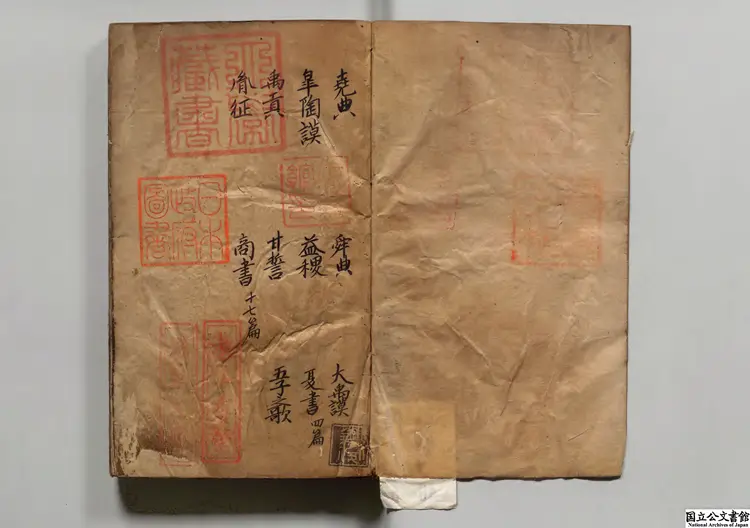 堯典 舜典 大禹謨
皐陶謨 益稷 夏書四篇
禹貢 甘誓 五子之歌
胤征 商書十七篇
藏書
日本
政府
圖書
国立公文書館
National Archives of Japan